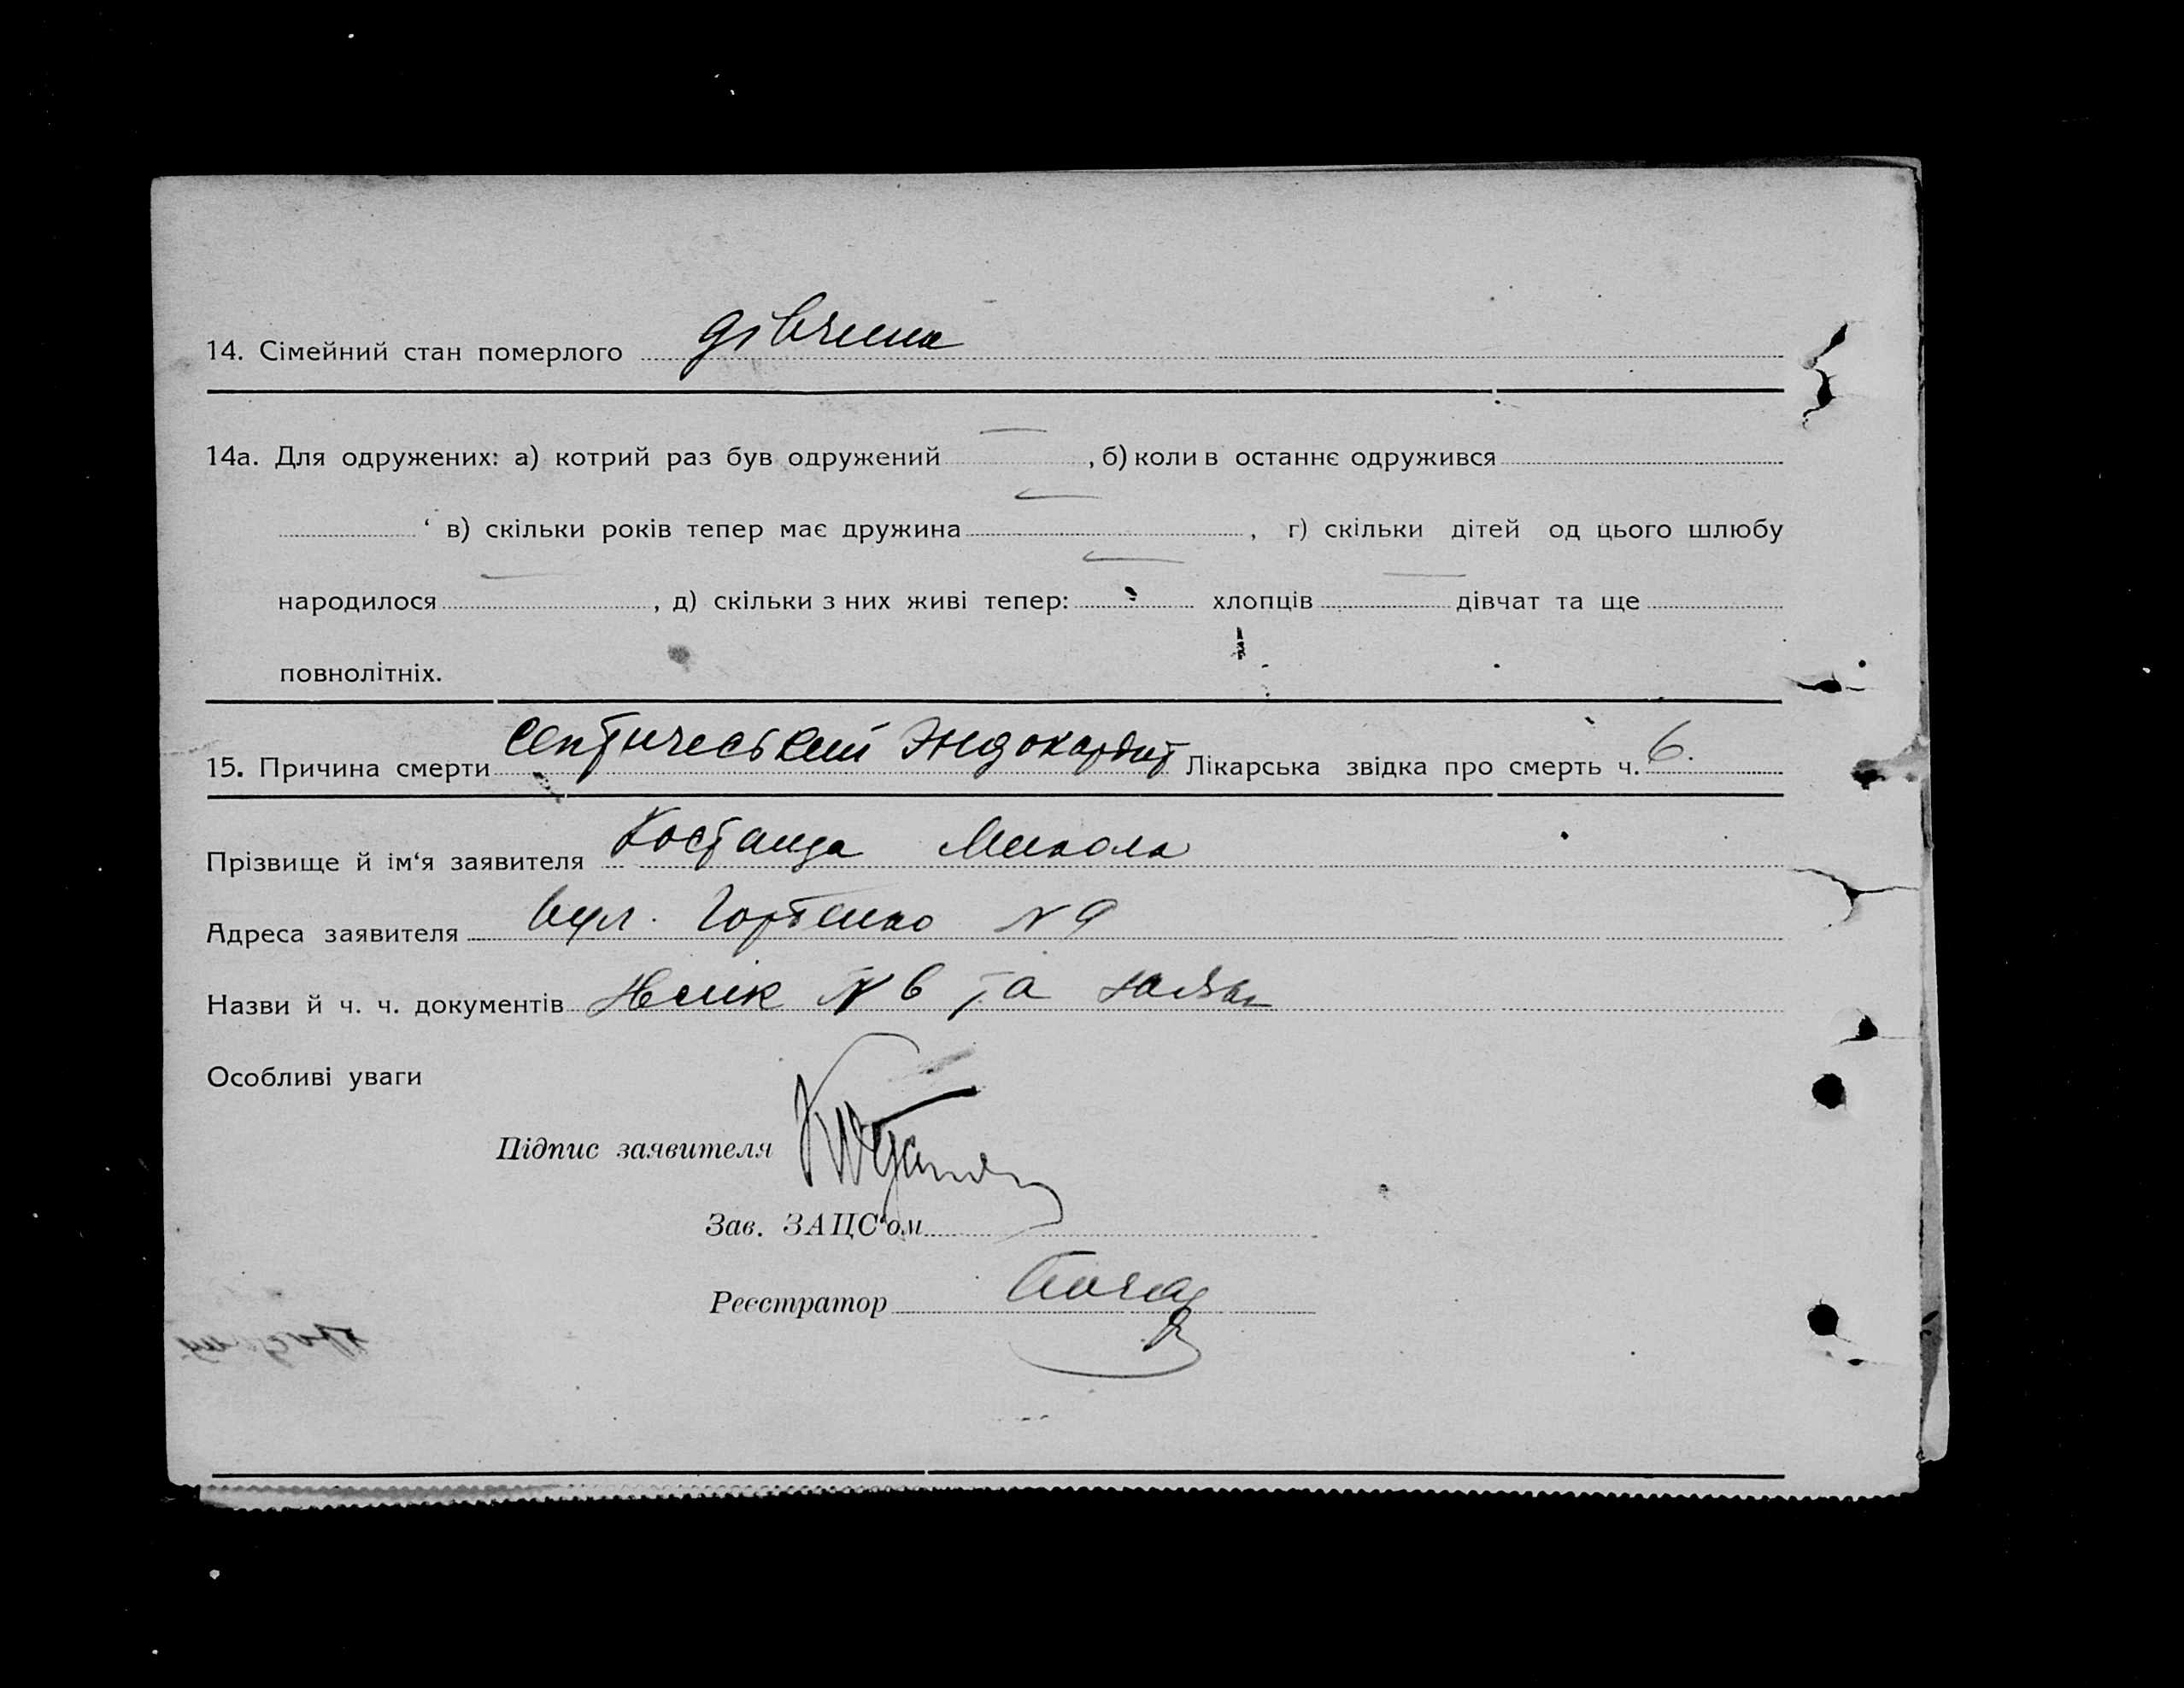 14. Сімейний стан померлого дівчина
14а. Для одружених: а) котрий раз був одружений — , б) коли в останнє одружився
‘ в) скільки років тепер має дружина — , г) скільки дітей од цього шлюбу
народилося — , д) скільки з них живі тепер: — хлопців — дівчат та ще
повнолітніх.
15. Причина смерти септическый Эндокардит Лікарська звідка про смерть ч. 6.
Прізвище й ім‘я заявителя Костанда Микола
Адреса заявителя вул. Горбенко N 9
Назви й ч. ч. документів N 6 та
Особливі уваги
Підпис заявителя
Зав. ЗАЦС‘ом
Реєстратор